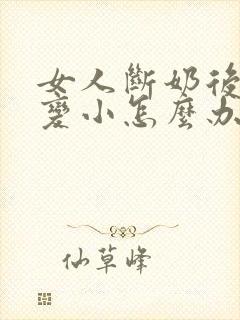 女人斷奶後
變小怎麼办
仙草峰